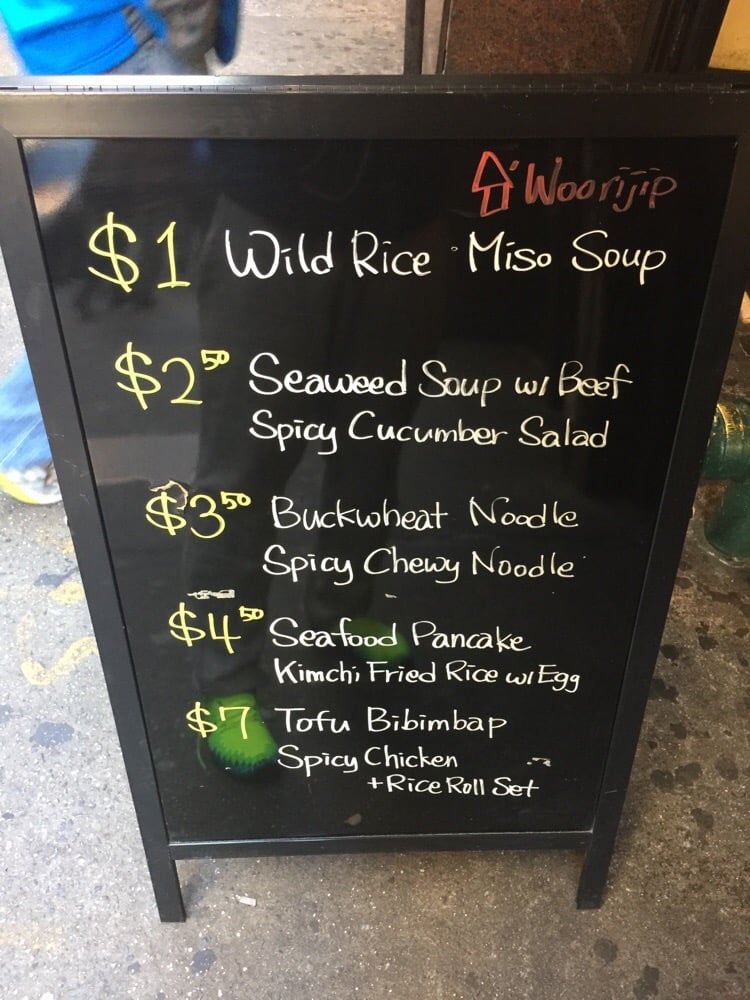 Woorijip
$1 Wild Rice · Miso Soup
$2.50 Seaweed Soup w/ Beef
Spicy Cucumber Salad
$3.50 Buckwheat Noodle
Spicy Chewy Noodle
$4.50 Seafood Pancake
Kimchi Fried Rice w/ Egg
$7 Tofu Bibimbap
Spicy Chicken
+ Rice Roll Set